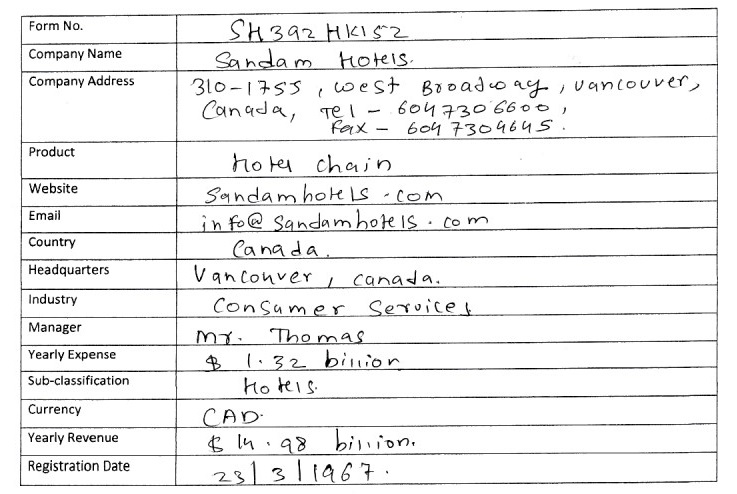 Form No. SH392HK152
Company Name Sandam Hotels.
Company Address 310-1755, West Broadway, Vancouver,
Canada, Tel - 6047306600,
Fax - 6047304645.
Product Hotel chain
Website Sandamhotels.com
Email info@Sandamhotels.com
Country Canada.
Headquarters Vancouver, Canada.
Industry Consumer Services
Manager Mr. Thomas
Yearly Expense $ 1.32 billion
Sub-classification Hotels.
Currency CAD.
Yearly Revenue $ 14.98 billion.
Registration Date 23/3/1967.